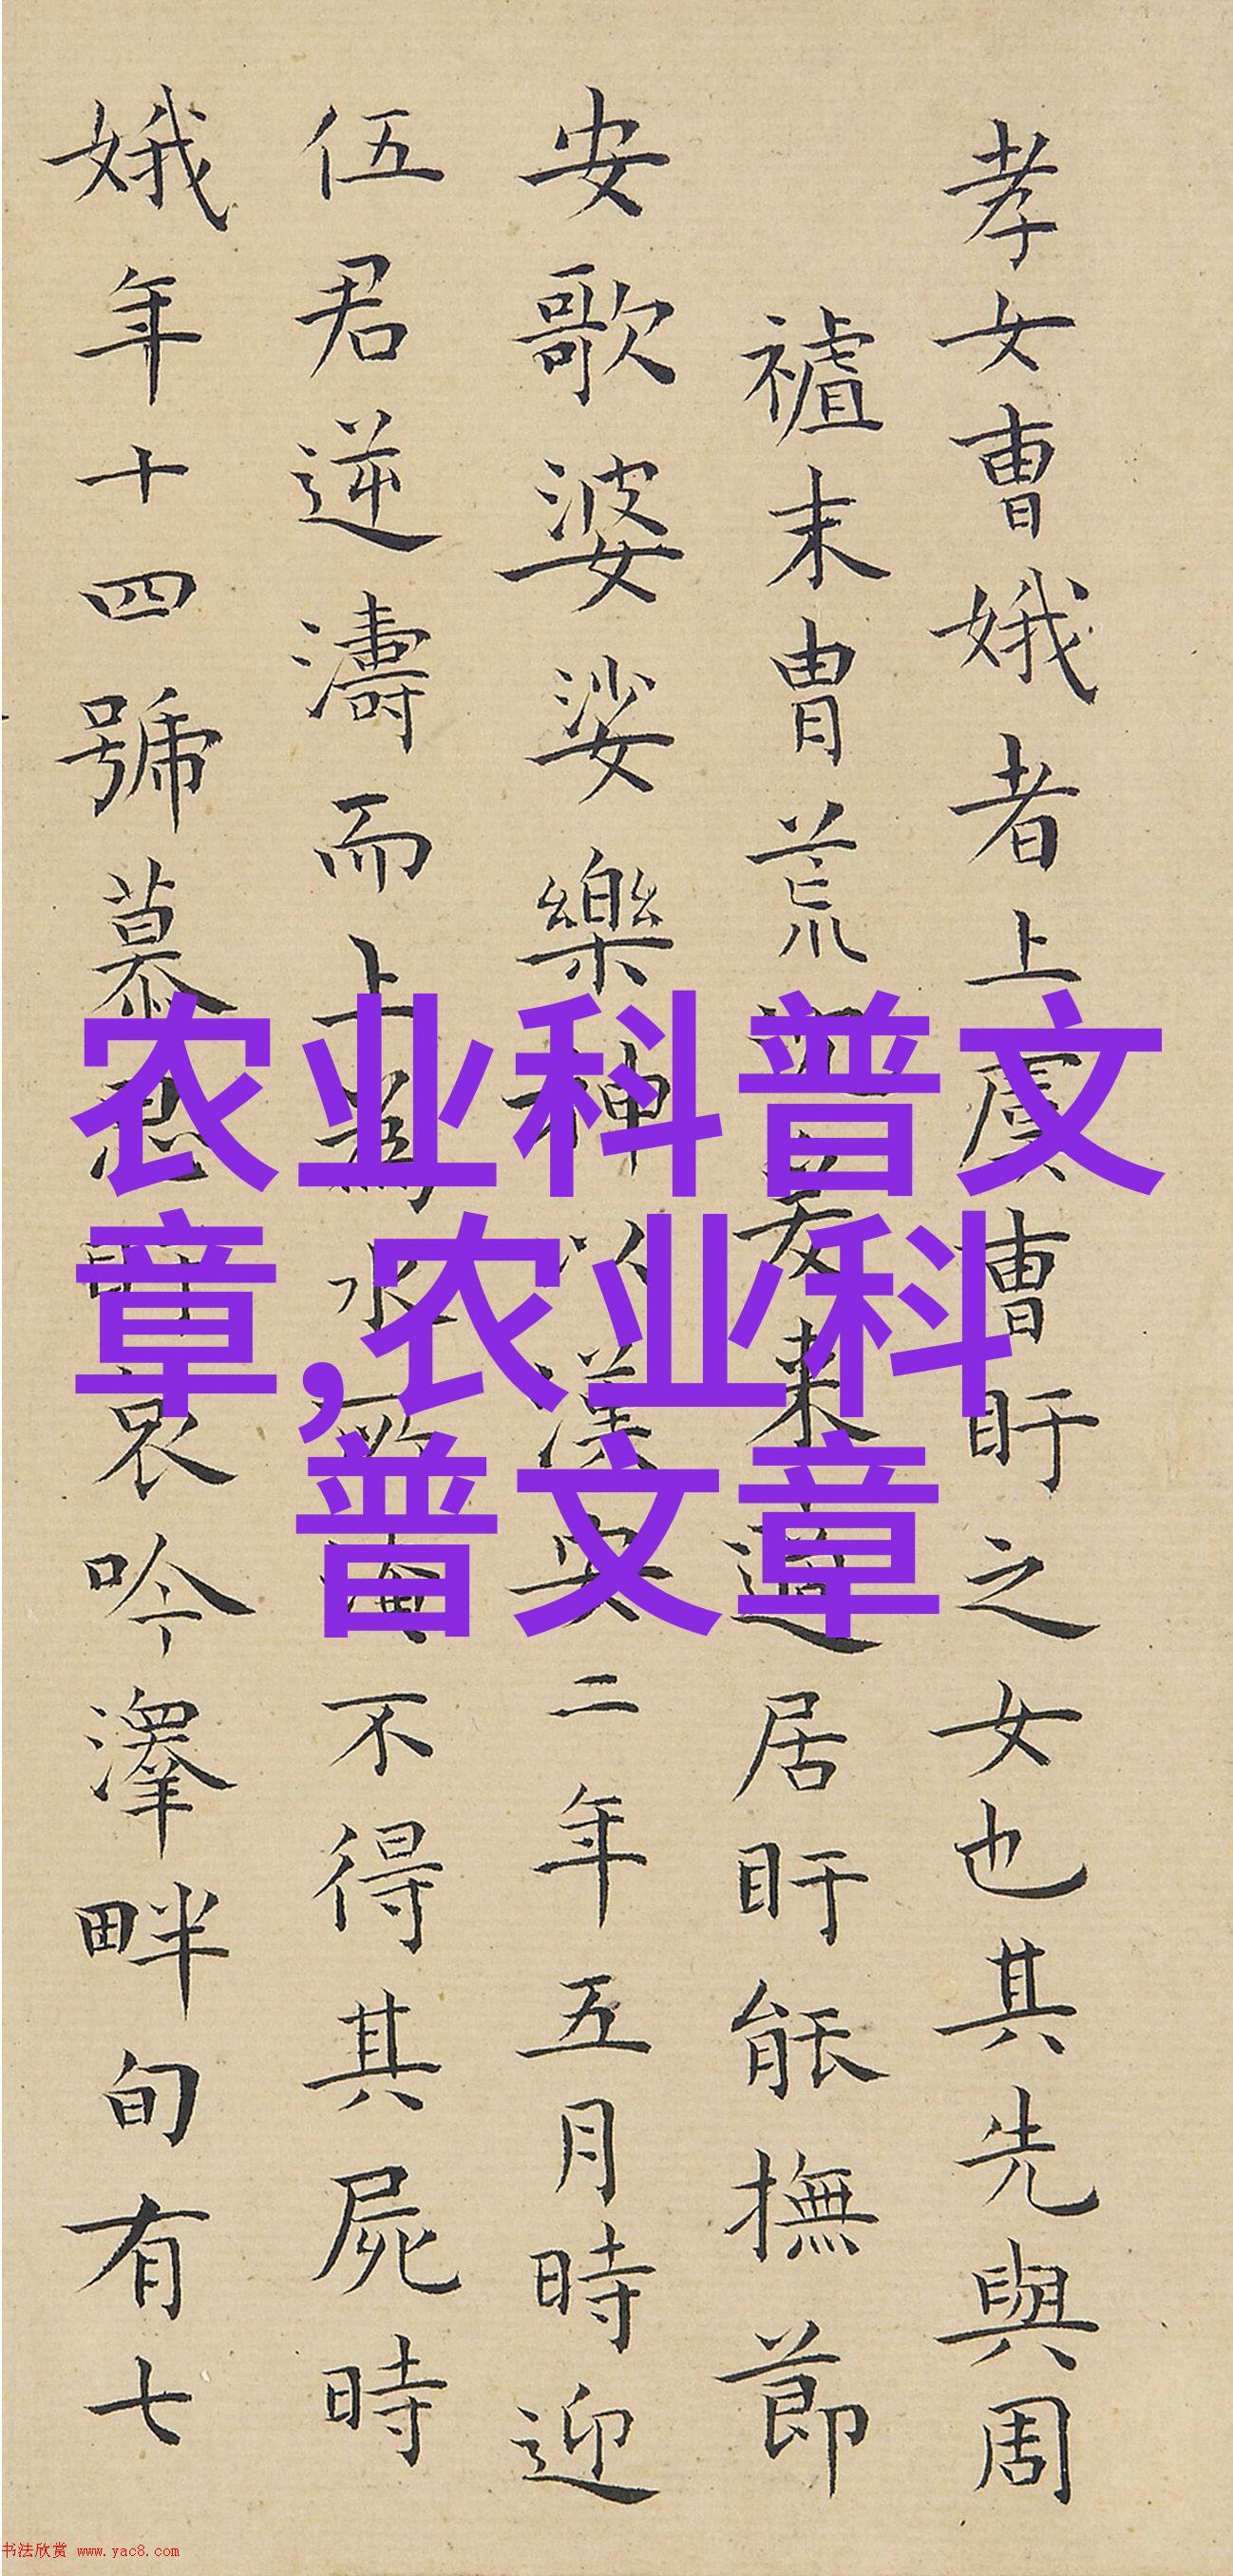 孝女曹娥者上虞曹盱之女也其先與周
禇末胄荒来適居盱能撫節
安歌婆娑樂神以漢安二年五月時迎
伍君逆濤而上為水不得其屍時
娥年十四號慕思哀吟澤畔旬有七
农业科普文
章,农业科
普文章
书法欣赏 www.yac8.com